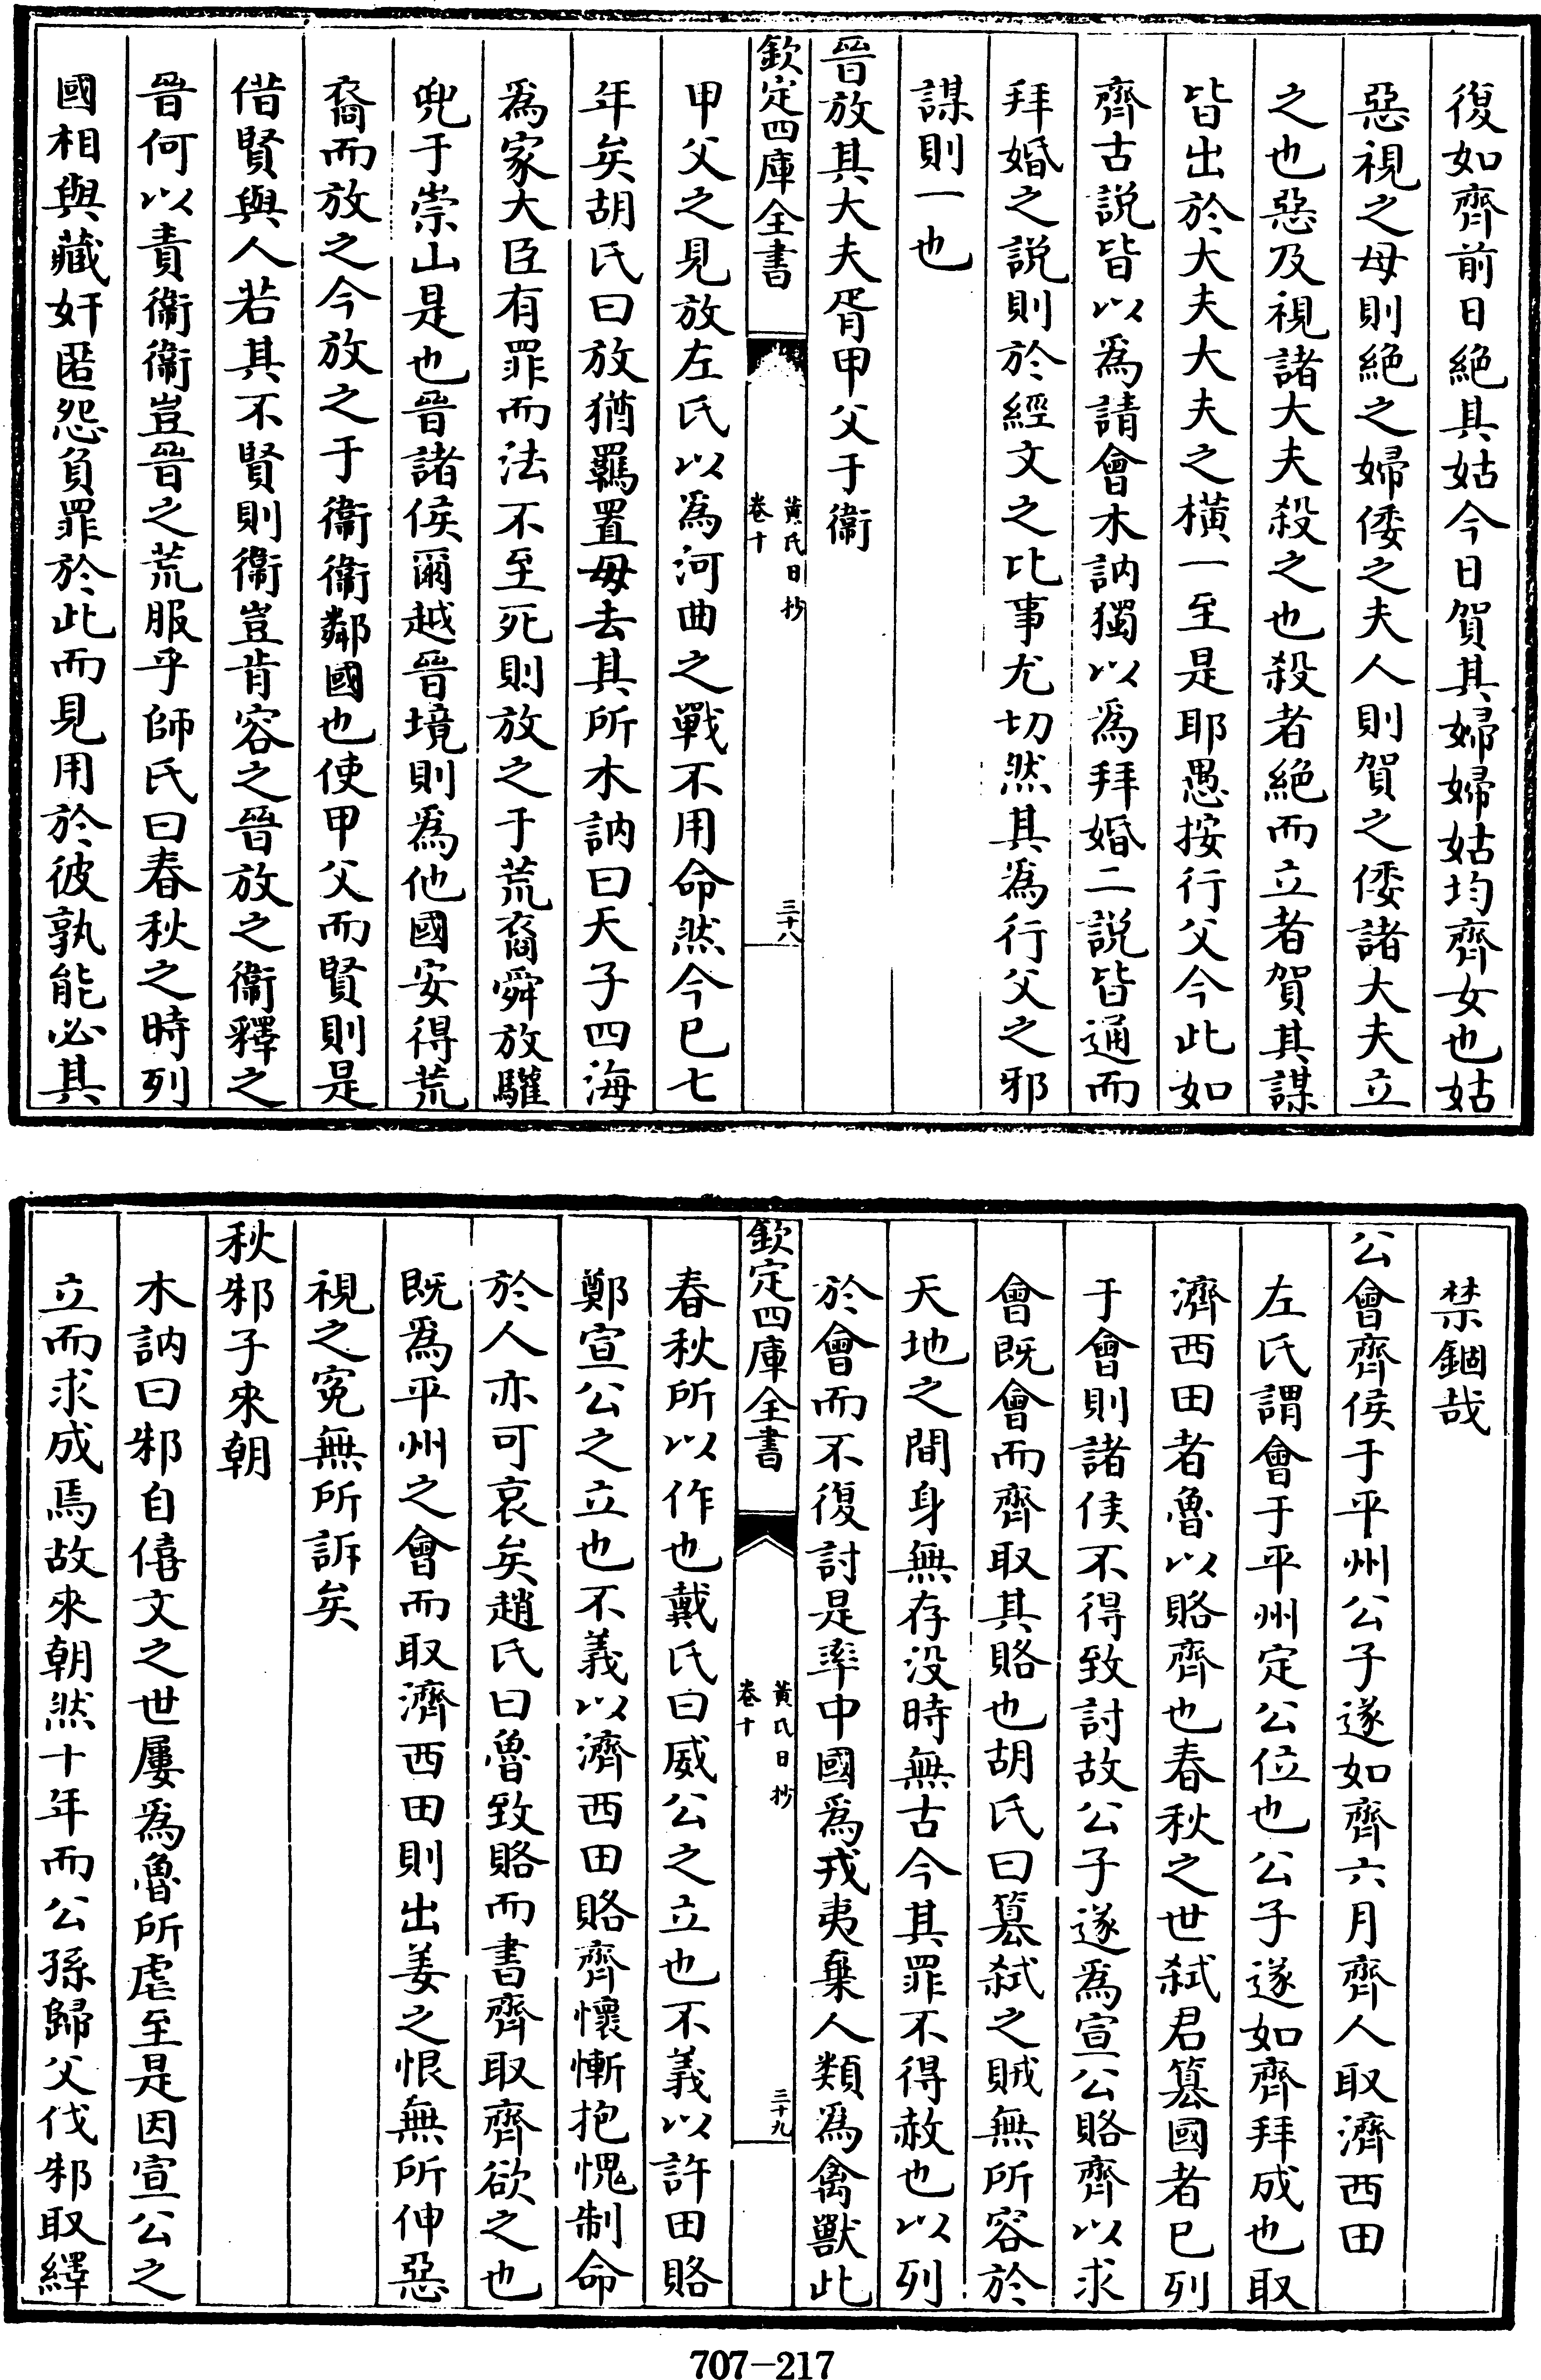 復如齊前日絶其姑今日賀其婦婦姑均齊女也姑
惡視之母則絶之婦倭之夫人則賀之倭諸大夫立
之也惡及視諸大夫殺之也殺者絶而立者賀其謀
皆出於大夫大夫之橫一至是耶愚按行父今此如
齊古説皆以為請會木訥獨以為拜婚二説皆通而
拜婚之説則於經文之比事尤切然其為行父之邪
謀則一也
晉放其大夫胥甲父于衞
欽定四庫全書
黃氏日抄
卷十
三十八
甲父之見放左氏以為河曲之戰不用命然今已七
年矣胡氏曰放猶羈置毋去其所木訥曰天子四海
為家大臣有罪而法不至死則放之于荒裔舜放驩
兜于崇山是也晉諸侯爾越晉境則為他國安得荒
裔而放之今放之于衞衞鄰國也使甲父而賢則是
借賢與人若其不賢則衞豈肯容之晉放之衞釋之
晉何以責衞衞豈晉之荒服乎師氏曰春秋之時列
國相與藏奸匿怨負罪於此而見用於彼孰能必其
禁錮哉
公會齊侯于平州公子遂如齊六月齊人取濟西田
左氏謂會于平州定公位也公子遂如齊拜成也取
濟西田者魯以賂齊也春秋之世弑君篡國者已列
于會則諸侯不得致討故公子遂為宣公賂齊以求
會既會而齊取其賂也胡氏曰篡弑之賊無所容於
天地之間身無存没時無古今其罪不得赦也以列
於會而不復討是率中國為戎夷棄人類為禽獸此
欽定四庫全書
黃氏日抄
卷十
三十九
春秋所以作也戴氏曰威公之立也不義以許田賂
鄭宣公之立也不義以濟西田賂齊懷慚抱愧制命
於人亦可哀矣趙氏曰魯致賂而書齊取齊欲之也
既為平州之會而取濟西田則出姜之恨無所伸惡
視之寃無所訴矣
秋邾子來朝
木訥曰邾自僖文之世屢為魯所虐至是因宣公之
立而求成焉故來朝然十年而公孫歸父伐邾取繹
707-217